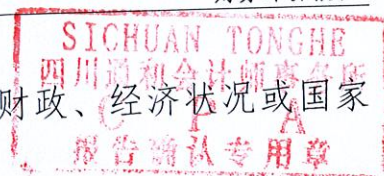 SICHUAN TONGHE
四川通和会计师事务所
财政、经济状况或国家
C P A
报告确认专用章